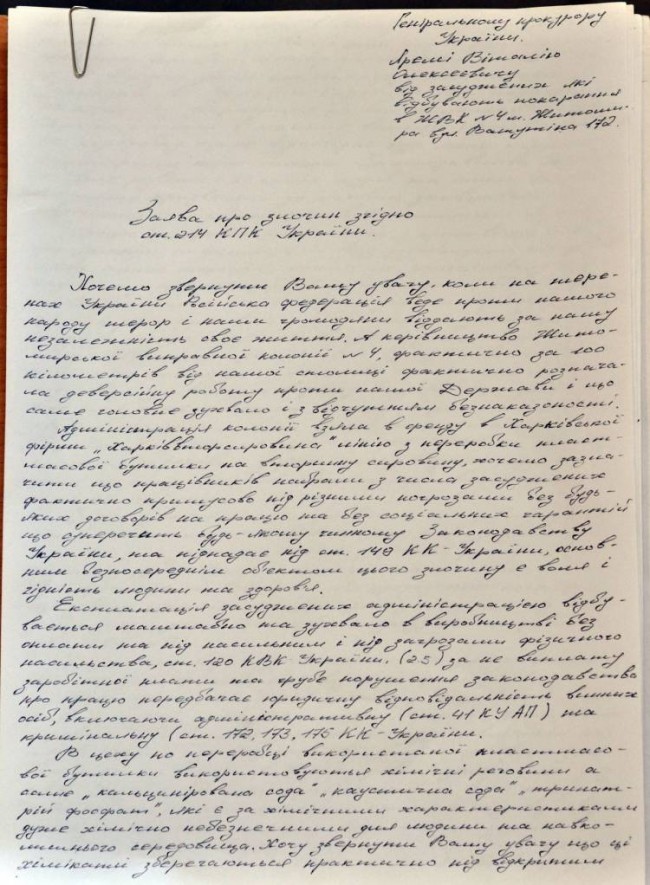 Генеральному прокурору
України.
Яремі Віталію
Олексеєвичу
від засуджених які
відбувають покарання
в ЖВК №4 м. Житоми-
ра вул. Ватутіна 172.
Заява про злочин згідно
ст. 214 КПК України.
Хочемо звернути Вашу увагу, коли на тере-
нах України Російська федерація веде проти нашого
народу терор і наши громодяни віддають за нашу
незалежність своє життя. А керівництво Жито-
мирської виправної колонії №4, фактично за 100
кілометрів від нашої столиці фактично розпоча-
ла деверсійну роботу проти нашої Держави і що
саме головне зухвало і з відчуттям безнаказоності.
Адміністрація колонії взяла в оренду в Харківської
фірми "Харківвторсировина" лінію з переробки пласт-
масової бутилки на вторинну сировину, хочемо зазна-
чити що працівників набрали з числа засуджених
фактично примусово під різними погрозами без будь-
яких договорів на працю та без соціальних гарантій
що суперечить будь-якому чинному Законодавству
України, та підпадає під ст. 149 КК-України, основ-
ним безпосереднім об'єктом цього злочину є воля і
гідність людини та здоров'я.
Експлатація засуджених адміністрацією відбу-
вається масштабно та зухвало в виробництві без
оплати та під насильним і під загрозами фізичного
насильства, ст. 120 КВК України. за не виплату
заробітної плати та грубе порушення законодавства
про працю передбачає юридичну відповідальність винних
осіб, включаючи адміністративну (ст. 41 КУАП) та
кримінальну (ст. 172, 173, 175 КК-України.
В цеху по переробці використаної пластмасо-
вої бутилки використовуються хімічні речовини а
саме "кальцинірована сода" "каустична сода" "тринат-
рій фосфат", які є за хімічними характеристиками
дуже хімічно небезпечними для людини та навко-
лишнього середовища. Хочу звернути Вашу увагу що ці
хімікати зберегаються практично під відкритим